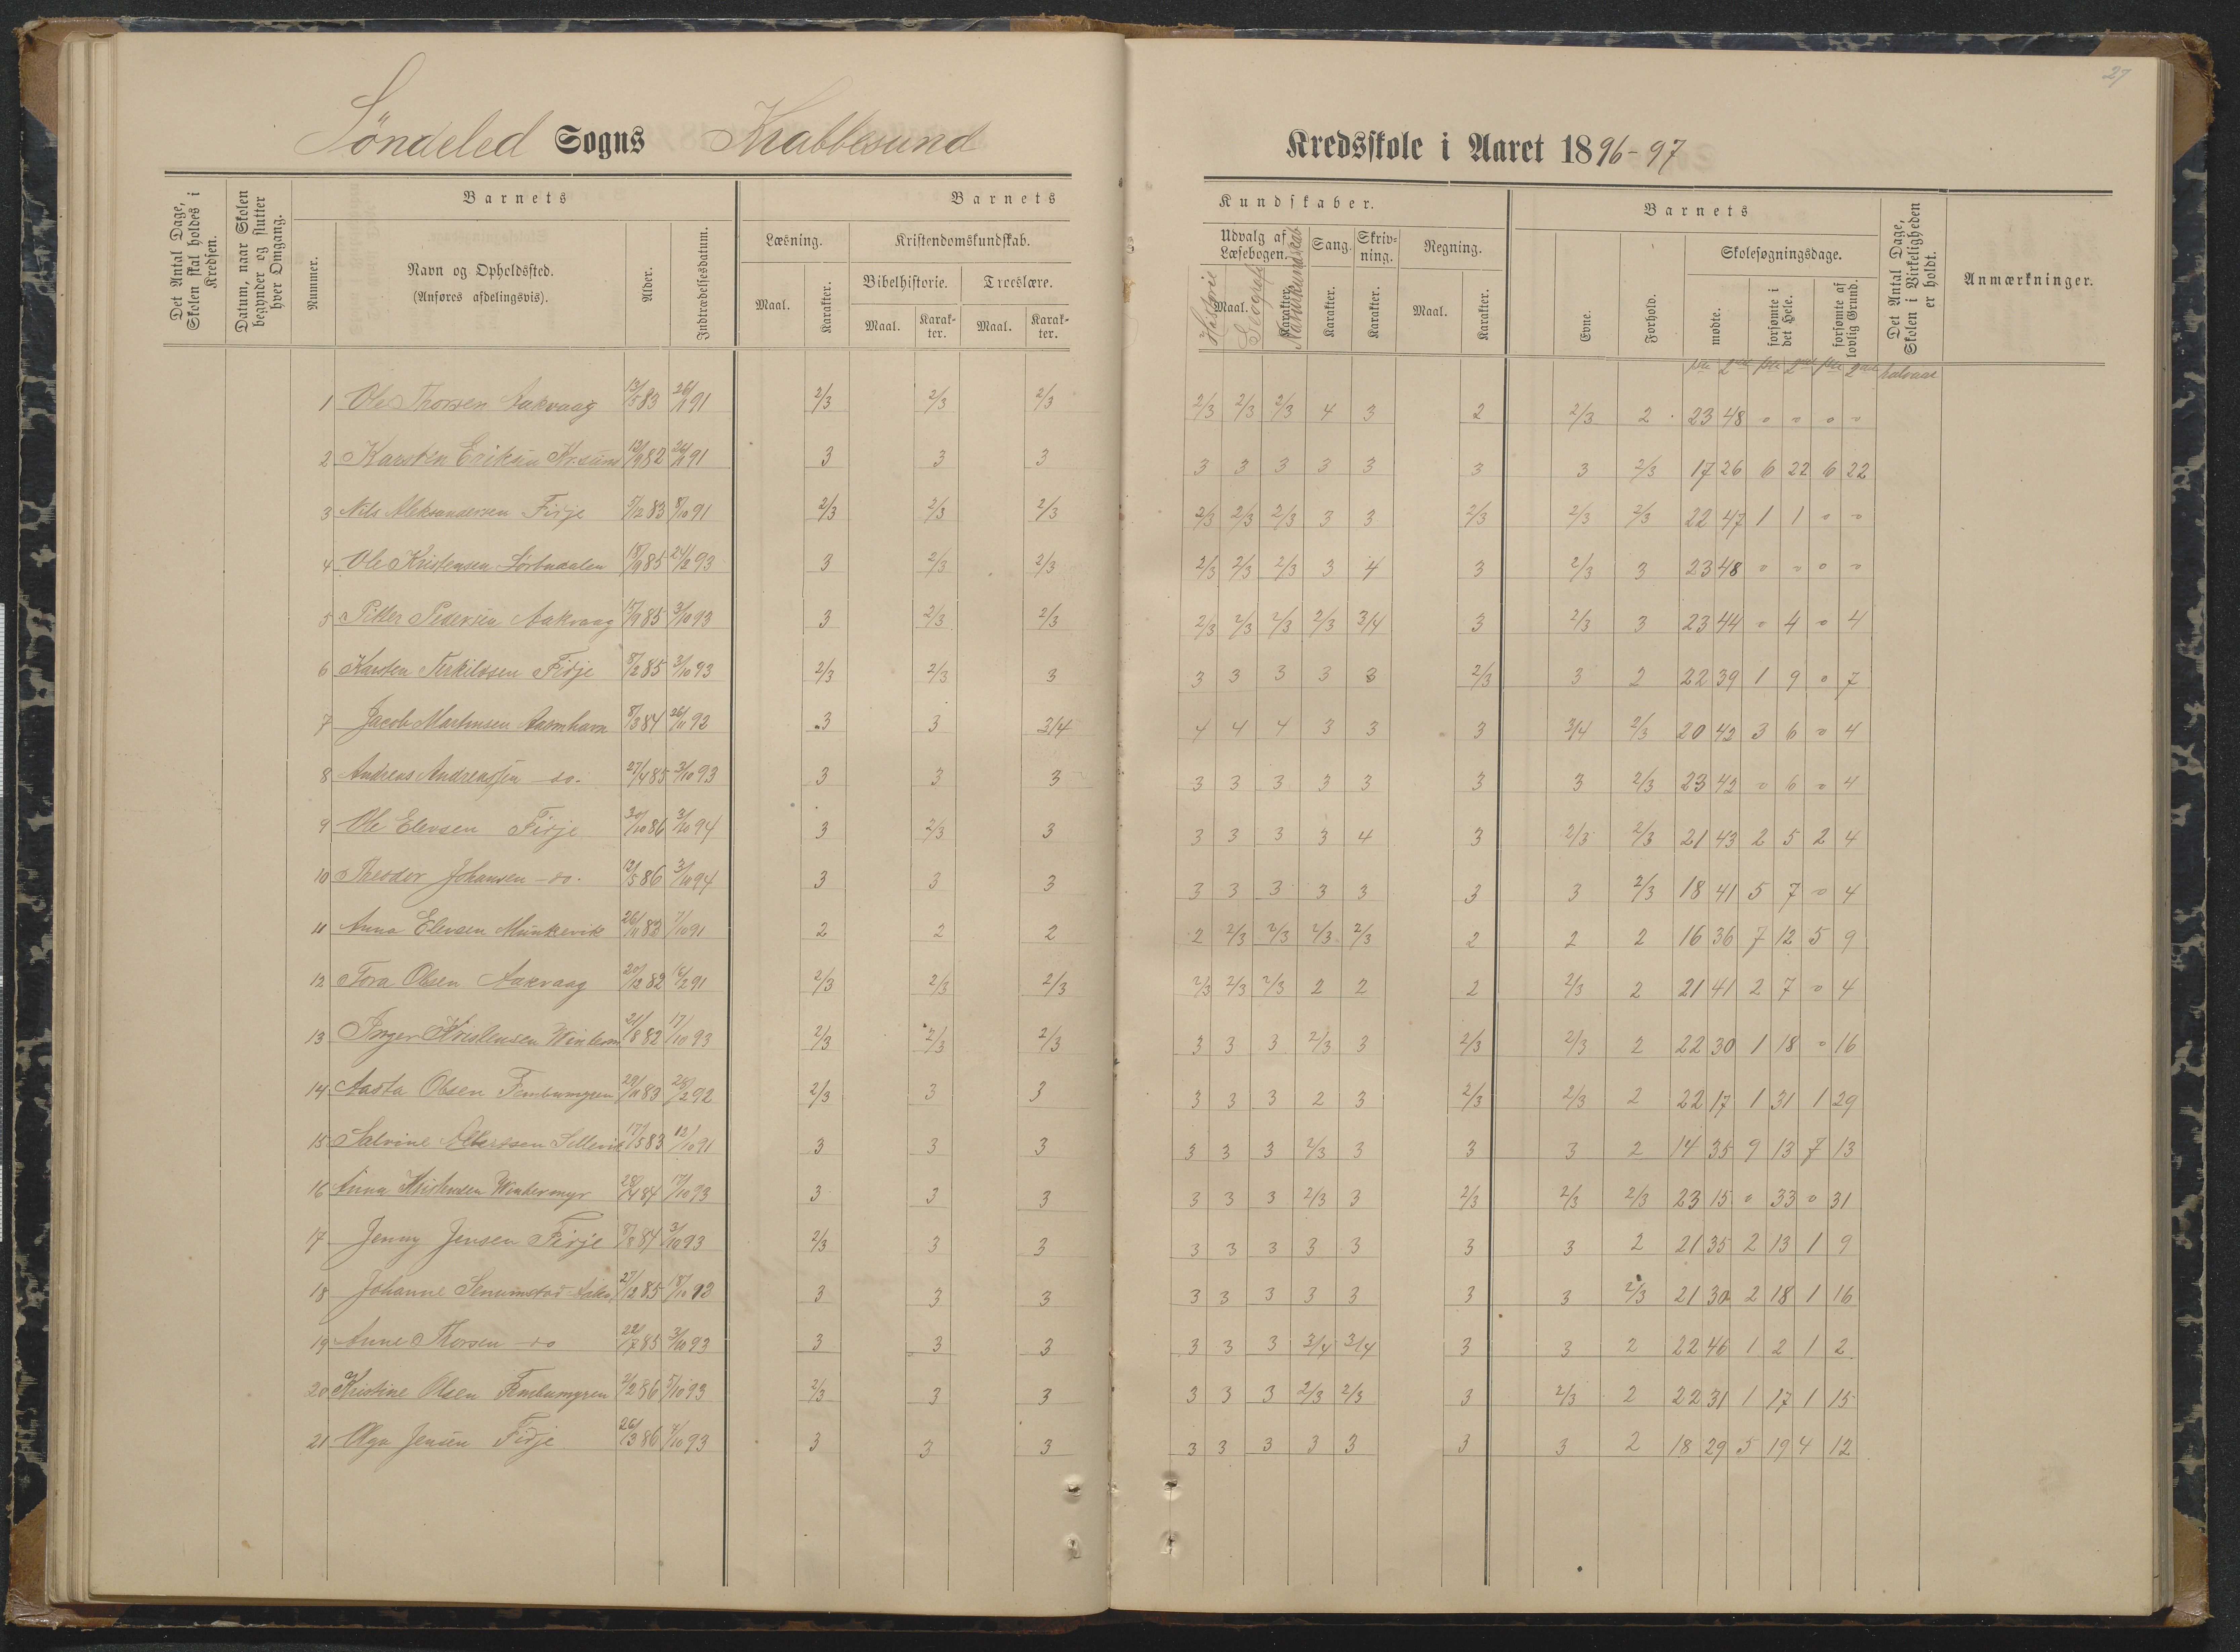 27
Søndeled Sogns Krabbesund Kredsskole i Aaret 1896-97
Det Antal Dage, Skolen skal holdes i Kredsen.
Datum, naar Skolen begynder og slutter hver Omgang.
Nummer.
Barnets
Navn og Opholdssted.
(Anføres afdelingsvis).
Alder.
Indtrædelsesdatum.
Barnets Kundskaber.
Læsning.
Maal. Karakter.
Kristendomskundskab.
Bibelhistorie. Troeslære.
Maal. Karakter. Maal. Karakter.
Udvalg af Læsebogen.
Maal. Karakter.
Historie Geografi Naturkundskab
Sang. Karakter.
Skrivning. Karakter.
Regning.
Maal. Karakter.
Barnets
Evne. Forhold.
Skolesøgningsdage.
mødte. forsømte i det Hele. forsømte af lovlig Grund.
Det Antal Dage, Skolen i Virkeligheden er holdt.
Anmærkninger.
1ste 2det 1ste 2det 1ste 2det halvaar
1 Ole Thorsen Aakvaag 13/5 83 26/11 91 2/3 2/3 2/3 2/3 2/3 2/3 4 3 2 2/3 2 23 48 0 0 0 0
2 Karsten Eriksen Kr.sund 12/9 82 26/11 91 3 3 3 3 3 3 3 3 3 3 2/3 17 26 6 22 6 22
3 Nils Aleksandersen Fidje 5/12 83 8/10 91 2/3 2/3 2/3 2/3 2/3 2/3 3 3 2/3 2/3 2/3 22 47 1 1 0 0
4 Ole Kristensen 85 24/2 93 3 2/3 2/3 2/3 2/3 2/3 3 4 3 2/3 3 23 48 0 0 0 0
5 Peder Pedersen Aakvaag 85 3/10 93 3 2/3 2/3 2/3 2/3 2/3 2/3 3/4 3 2/3 3 23 44 0 4 0 4
6 Karsten Terkildsen Fidje 8/2 85 3/10 93 2/3 2/3 3 3 3 3 3 3 2/3 3 2 22 39 1 9 0 7
7 Jacob Martinsen 8/3 84 26/11 92 3 3 3/4 4 4 4 3 3 3 3/4 2/3 20 42 3 6 0 4
8 Andreas Andreassen do. 27/4 85 3/10 93 3 3 3 3 3 3 3 3 3 3 2/3 23 42 0 6 0 4
9 Ole Elevsen Fidje 30/10 86 3/10 94 3 2/3 3 3 3 3 3 4 3 2/3 2/3 21 43 2 5 2 4
10 Theodor Johansen do. 12/5 86 3/10 94 3 3 3 3 3 3 3 3 3 3 2/3 18 41 5 7 0 4
11 Anna Elevsen Munkevik 26/11 83 7/10 91 2 2 2 2 2/3 2/3 2/3 2/3 2 2 2 16 36 7 12 5 9
12 Tora Olsen Aakvaag 20/12 82 16/2 91 2/3 2/3 2/3 2/3 2/3 2/3 2 2 2 2/3 2 21 41 2 7 0 4
13 Inger Kristensen 21/8 82 17/10 93 2/3 2/3 2/3 3 3 3 2/3 3 2/3 2/3 2 22 30 1 18 0 16
14 Aasta Olsen 29/11 83 28/2 92 2/3 3 3 3 3 3 2 3 2/3 2/3 2 22 17 1 31 1 29
15 Salvine 17/5 83 12/10 91 3 3 3 3 3 3 2/3 3 3 3 2 14 35 9 13 7 13
16 Anna Kristensen Wintermyr 28/4 84 17/10 93 3 3 3 3 3 3 2/3 3 2/3 2/3 2/3 23 15 0 33 0 31
17 Jenny Jensen Fidje 8/8 84 3/10 93 2/3 3 3 3 3 3 3 3 3 3 2 21 35 2 13 1 9
18 Johanne 27/12 85 18/10 93 3 3 3 3 3 3 3 3 3 3 2/3 21 30 2 18 1 16
19 Anne Thorsen do 22/7 85 3/10 93 3 3 3 3 3 3 3/4 3/4 3 3 2 22 46 1 2 1 2
20 Kristine Olsen 2/2 86 5/10 93 2/3 3 3 3 3 3 2/3 2/3 3 2/3 2 22 31 1 17 1 15
21 Olga Jensen Fidje 26/3 86 7/10 93 3 3 3 3 3 3 3 3 3 3 2 18 29 5 19 4 12